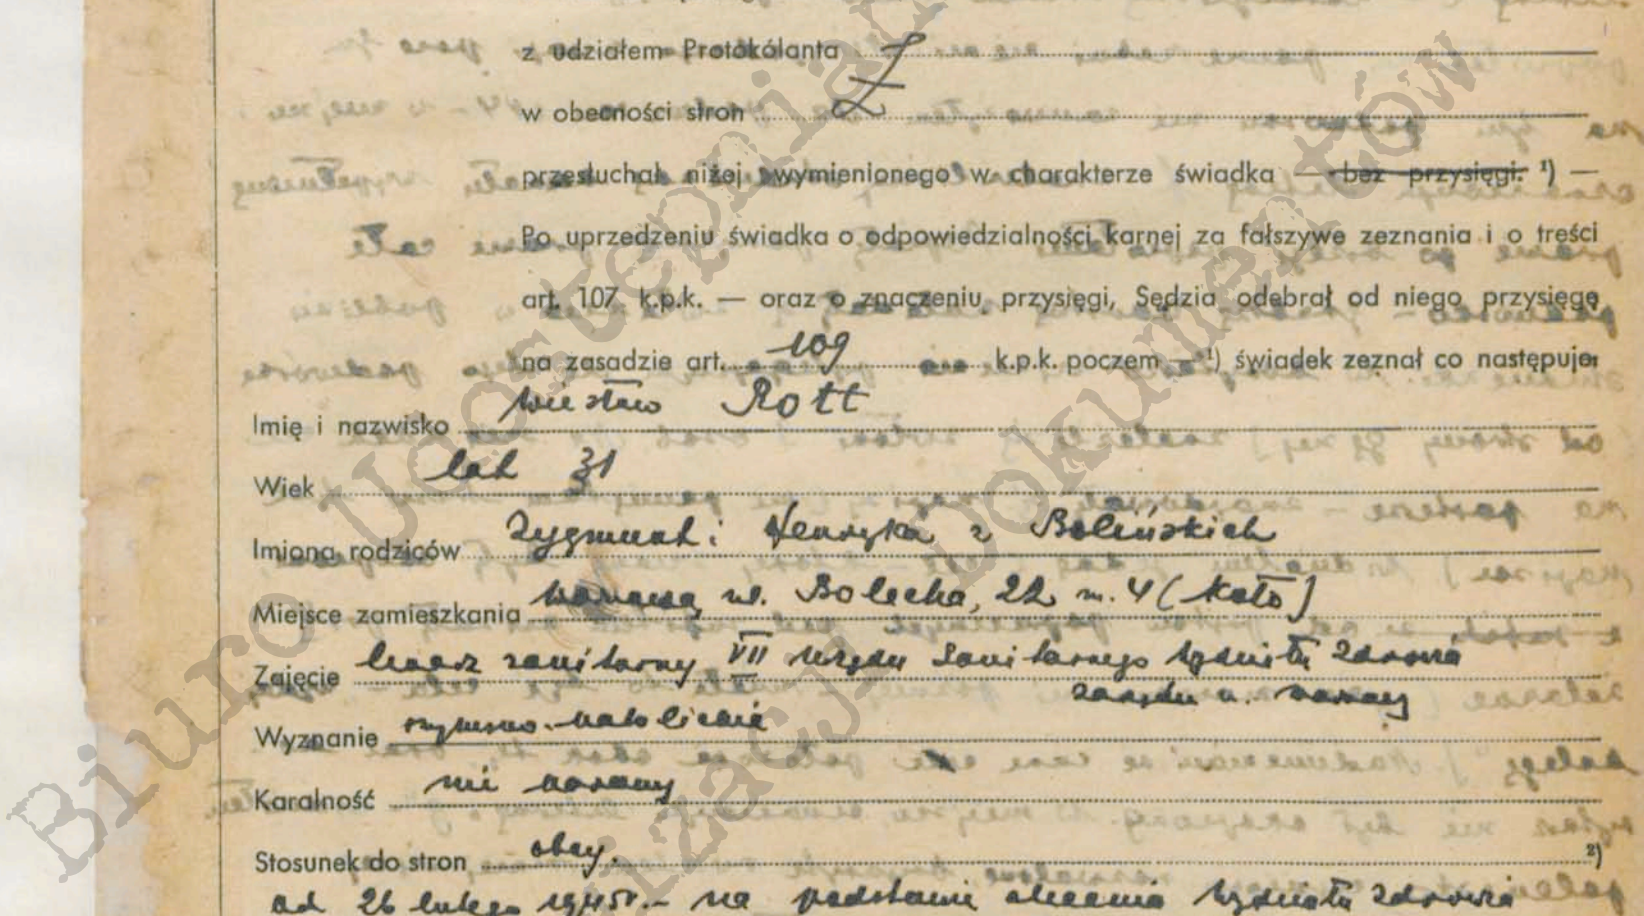 z udziałem Protokólanta
w obecności stron
przesłuchał niżej wymienionego w charakterze świadka — bez przysięgi. ¹) —
Po uprzedzeniu świadka o odpowiedzialności karnej za fałszywe zeznania i o treści
art. 107 k.p.k. — oraz o znaczeniu przysięgi, Sędzia odebrał od niego przysięgę
na zasadzie art. 109 k.p.k. poczem — ¹) świadek zeznał co następuje:
Imię i nazwisko Wiesław Rott
Wiek lat 31
Imiona rodziców Zygmunt i Henryka z Bolińskich
Miejsce zamieszkania Warszawa, ul. Bolecha, 22 m. 4 (Koło)
Zajęcie lekarz sanitarny VII Urzędu Sanitarnego Wydziału Zdrowia
Zarządu m. Warszawy
Wyznanie rzymsko-katolickie
Karalność nie karany
Stosunek do stron obcy. ²)
Od 26 lutego 1945 r. - na podstawie zlecenia Wydziału Zdrowia
Biuro Udostępniania
i Archiwizacji Dokumentów